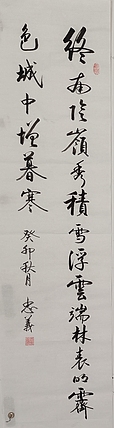 終南陰嶺秀積雪浮雲端林表明霽
色城中增暮寒
癸卯秋月 忠義